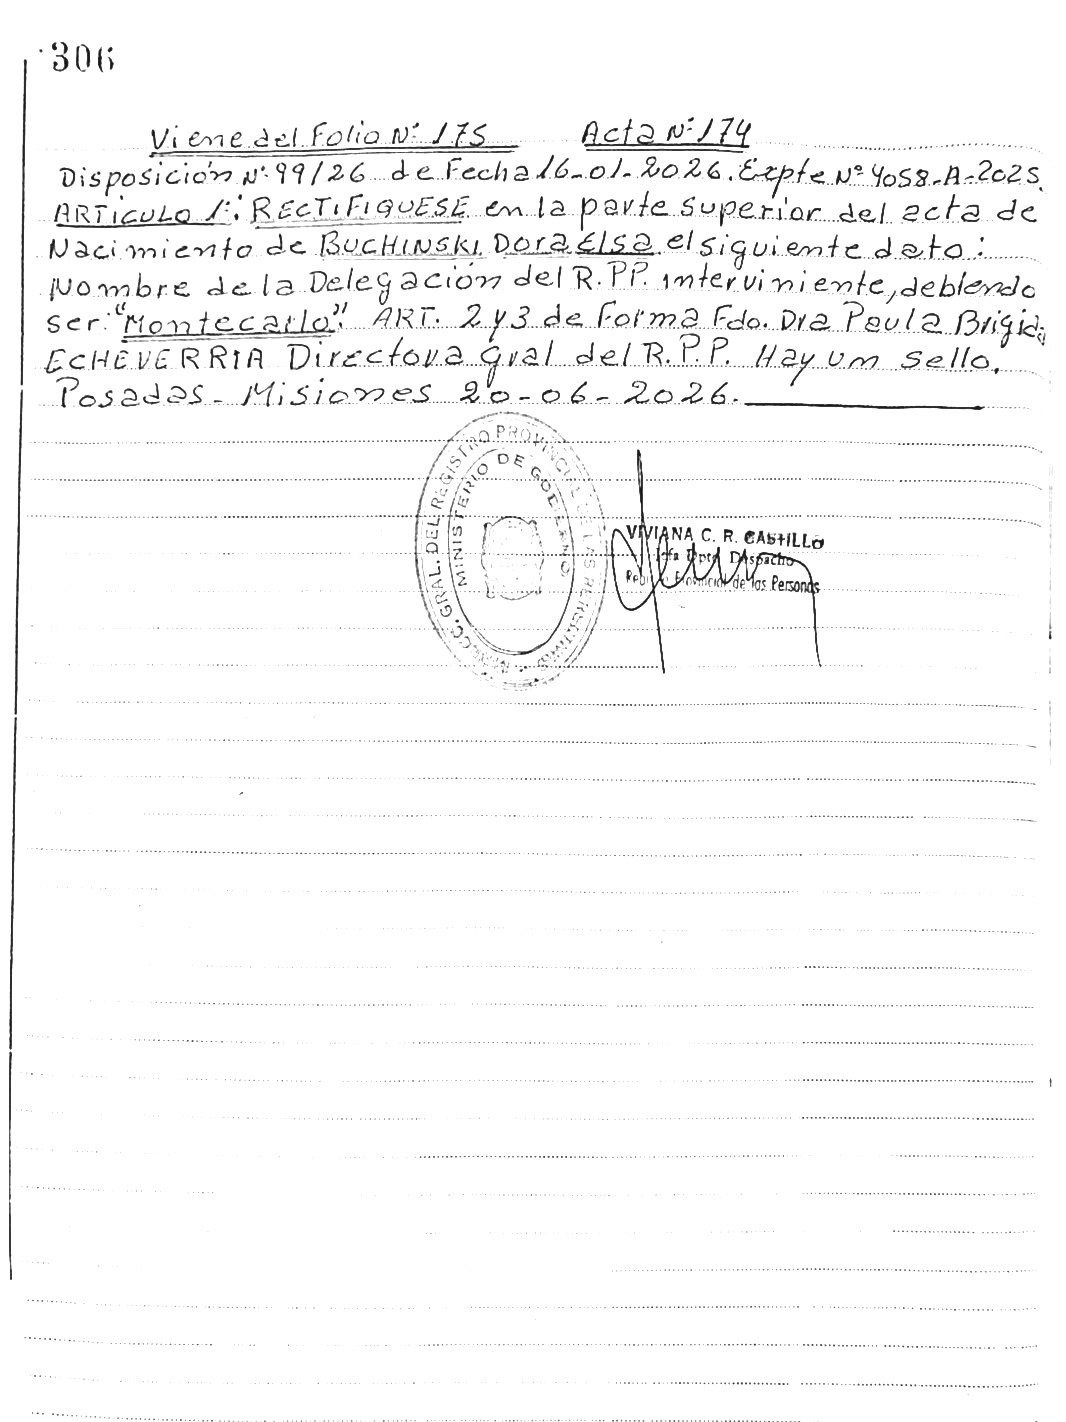 306
Viene del Folio Nº 175 Acta Nº 174
Disposición Nº 99/26 de Fecha 16-01-2026. Expte Nº 4058-A-2025.
ARTiCULO 1º: RECTIFIQUESE en la parte superior del acta de
Nacimiento de BUCHINSKI, Dora Elsa el siguiente dato:
Nombre de la Delegación del R.PP. interviniente, debiendo
ser: "Montecarlo". ART. 2 y 3 de Forma Fdo. Dra Paula Brigida
ECHEVERRIA Directora gral del R.P.P. Hay um sello.
Posadas - Misiones 20-06-2026.
GRAL. DEL REGISTRO PROVINCIAL DE LAS PERSONAS
MINISTERIO DE GOBIERNO
VIVIANA C. R. CASTILLO
Jefa Dpto. Despacho
Registro Provincial de las Personas